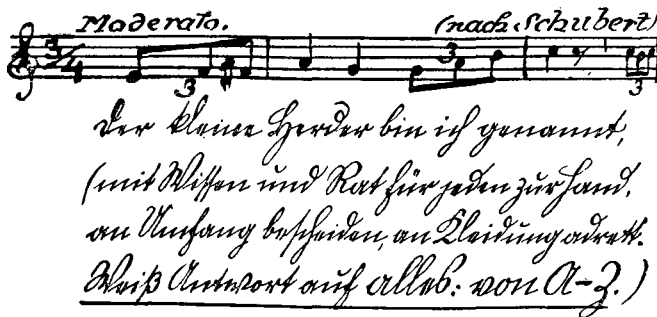 Moderato. (nach Schubert)
3/4
3 3 3
Der kleine Herder bin ich genannt,
(mit Wissen und Rat für jeden zur Hand,
an Umfang bescheiden, an Kleidung adrett.
Weiß Antwort auf alles: von A-Z.)